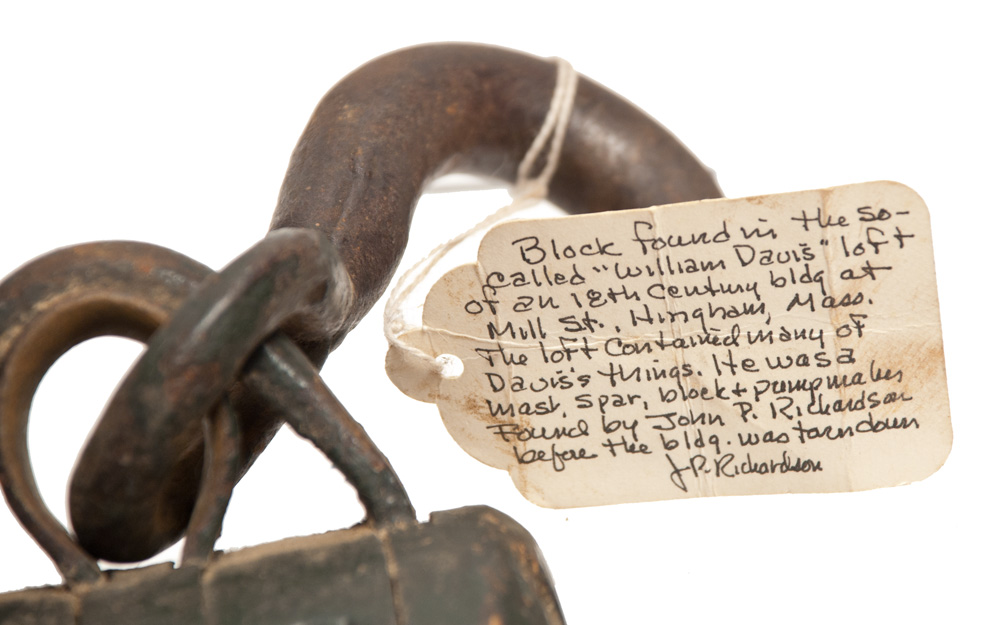 Block found in the so-
called "William Davis" loft
of an 18th Century bldg at
Mill St., Hingham, Mass.
The loft contained many of
Davis's things. He was a
mast, spar, block + pump maker
Found by John P. Richardson
before the bldg. was torn down
J.P. Richardson